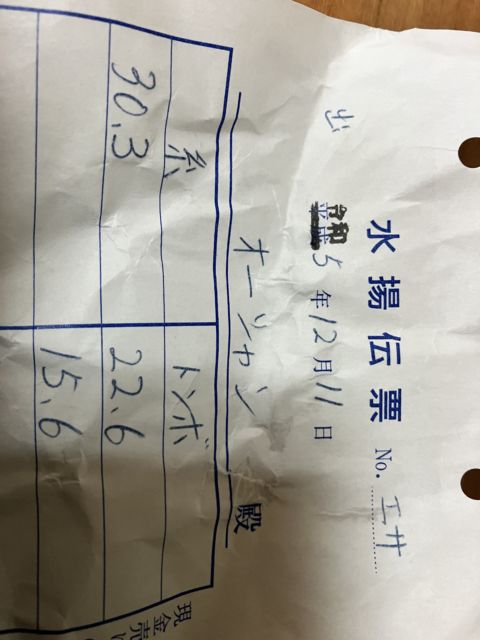 水揚伝票 No. エサ
出 令和5年12月11日
オーシャン 殿
糸 トンボ
30.3 22.6
15.6
現金売